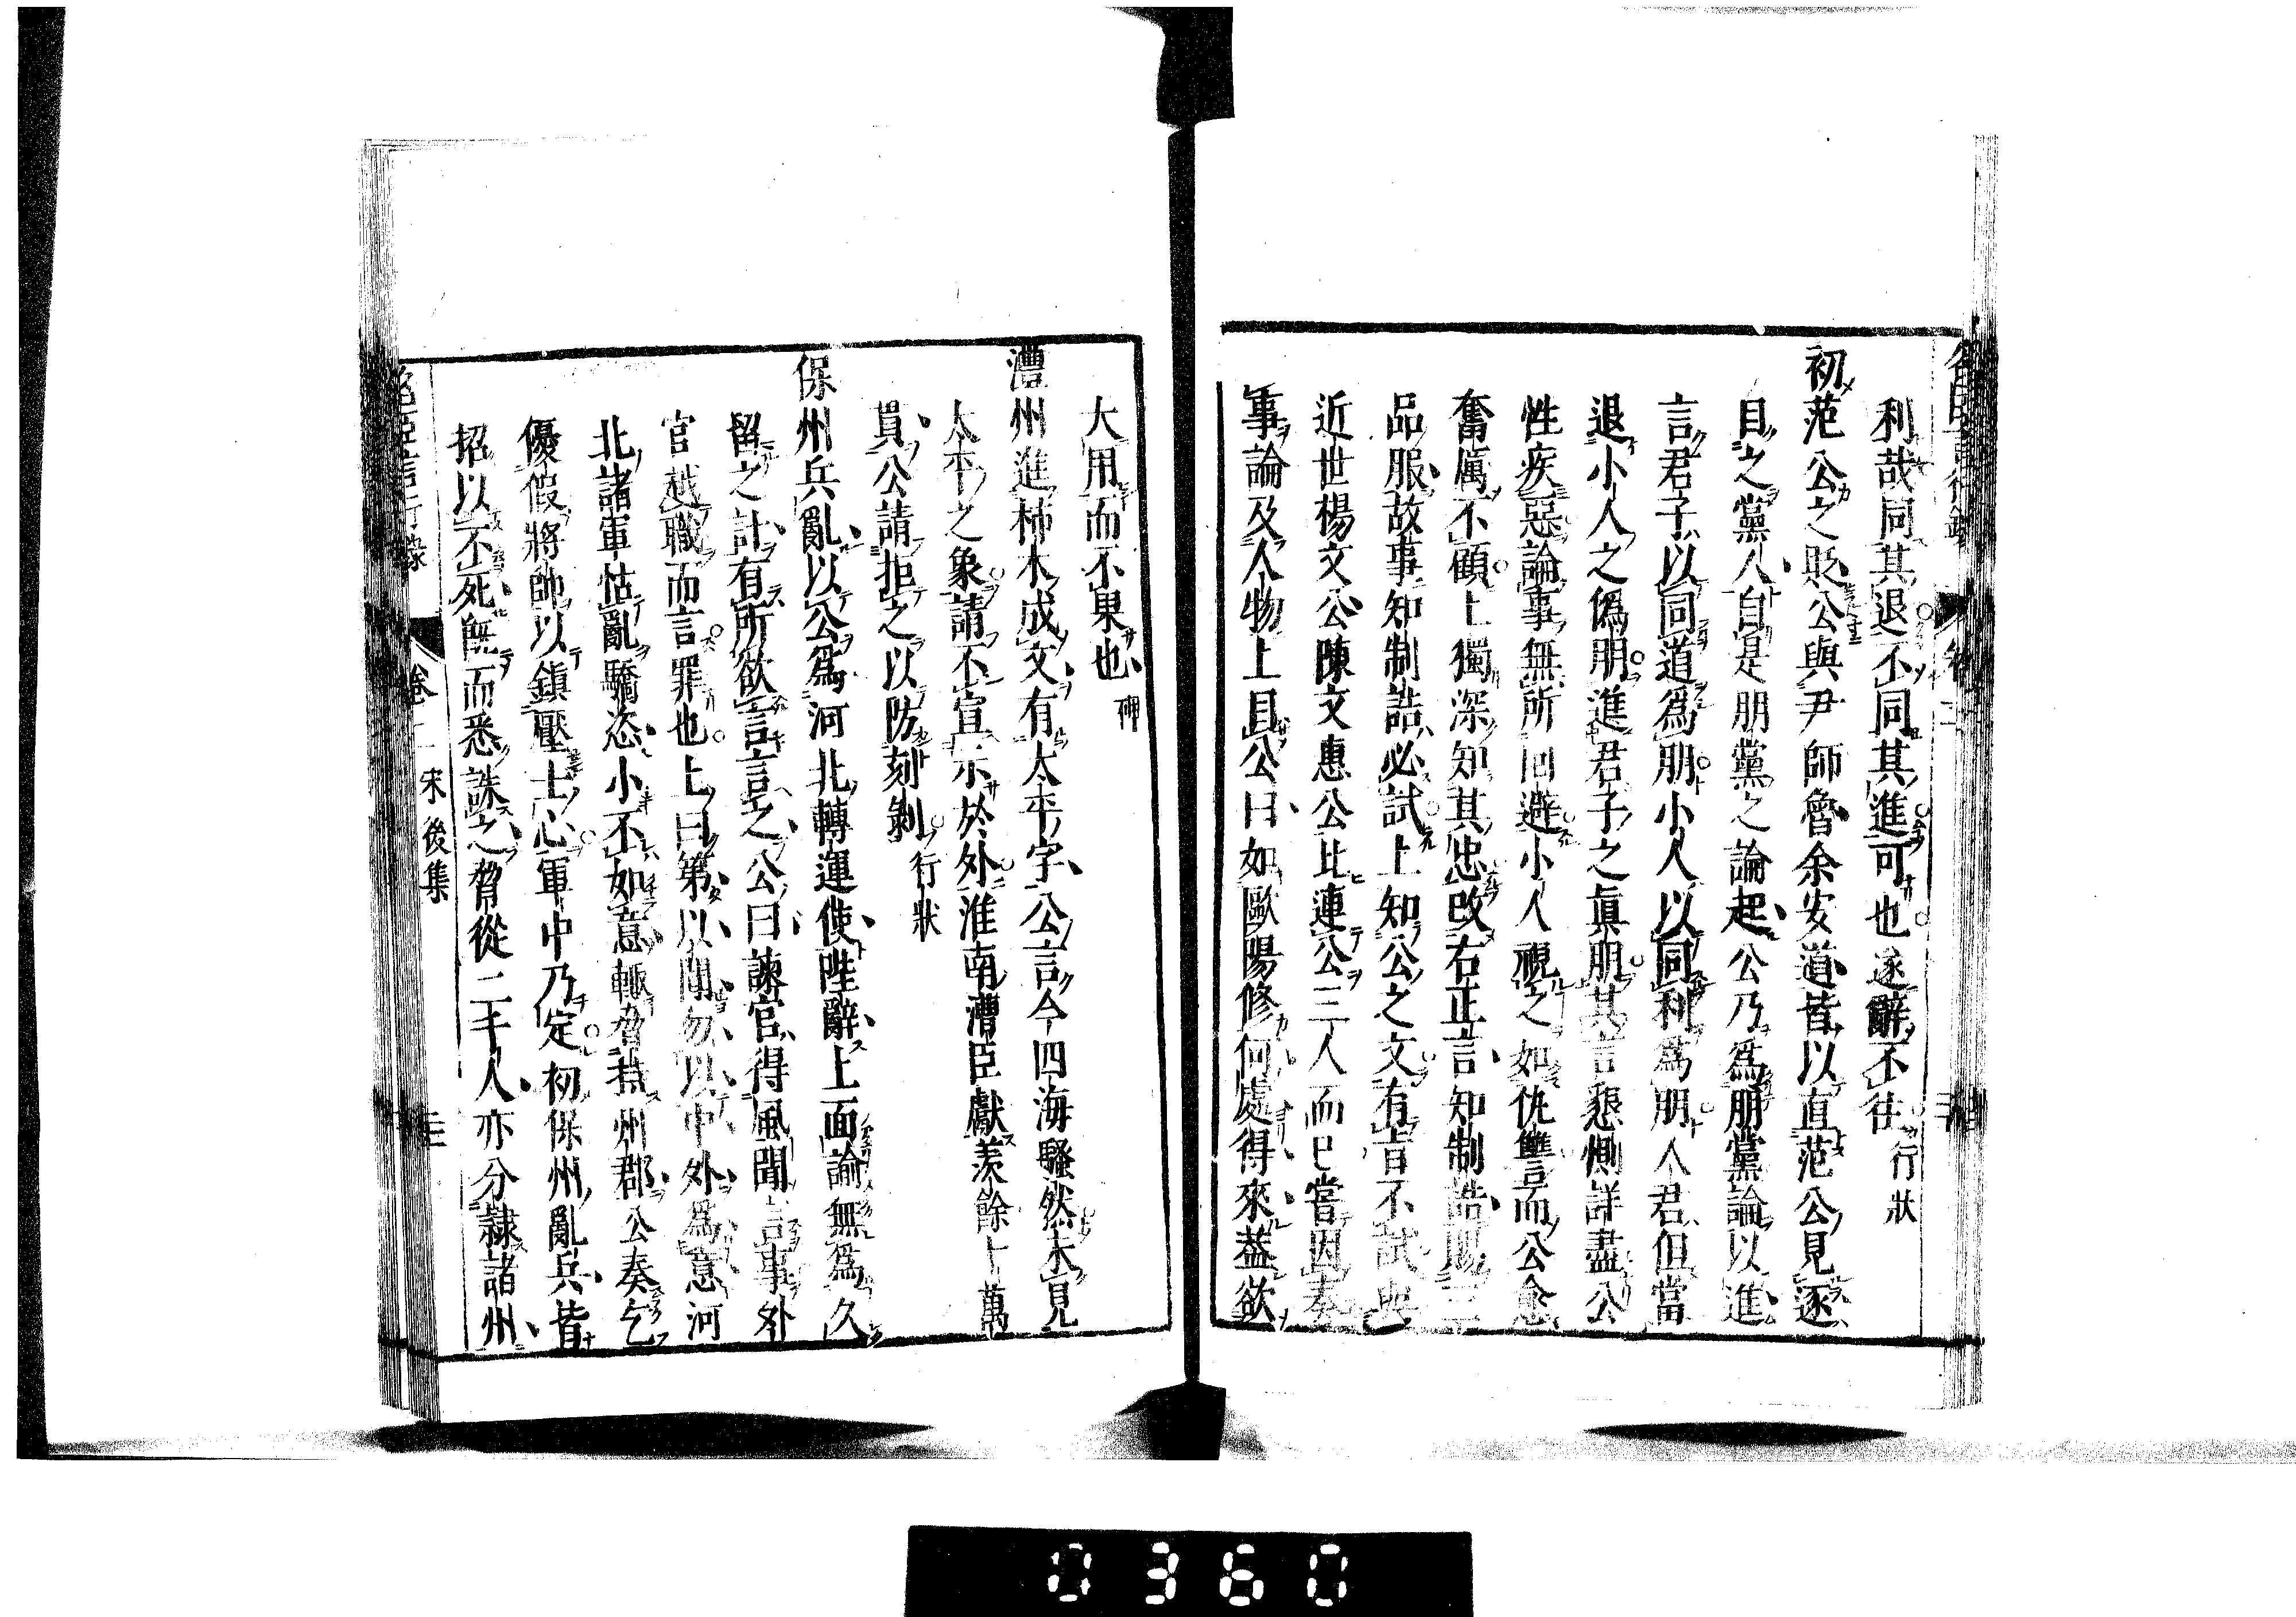 利哉同其退不同其進可也遂辭不往行狀
初范公之貶公與尹師魯余安道皆以直范公見逐
目之黨人自是朋黨之論起公乃爲朋黨論以進
言君子以同道爲朋小人以同利爲朋人君但當
退小人之僞朋進君子之眞朋其言懇惻詳盡公
性疾惡論事無所回避小人視之如仇讐而公愈
奮厲不顧上獨深知其忠改右正言知制誥賜三
品服故事知制誥必試上知公之文有旨不試與
近世楊文公陳文惠公比連公三人而已嘗因奏
事論及人物上目公曰如歐陽修何處得來葢欲
大用而不果也 碑
澧州進柿木成文有太平字公言今四海騷然未見
太平之象請不宣示於外淮南漕臣獻羡餘十萬
貫公請拒之以防刻剝 行狀
保州兵亂以公爲河北轉運使陛辭上面諭無爲久
留之計有所欲言言之公曰諫官得風聞言事外
官越職而言罪也上曰第以聞勿以中外爲意河
北諸軍怙亂驕恣小不如意輙脅持州郡公奏乞
優假將帥以鎭壓士心軍中乃定初保州亂兵皆
招以不死旣而悉誅之脅從二千人亦分隷諸州
言行錄 卷二 宋後集
0360